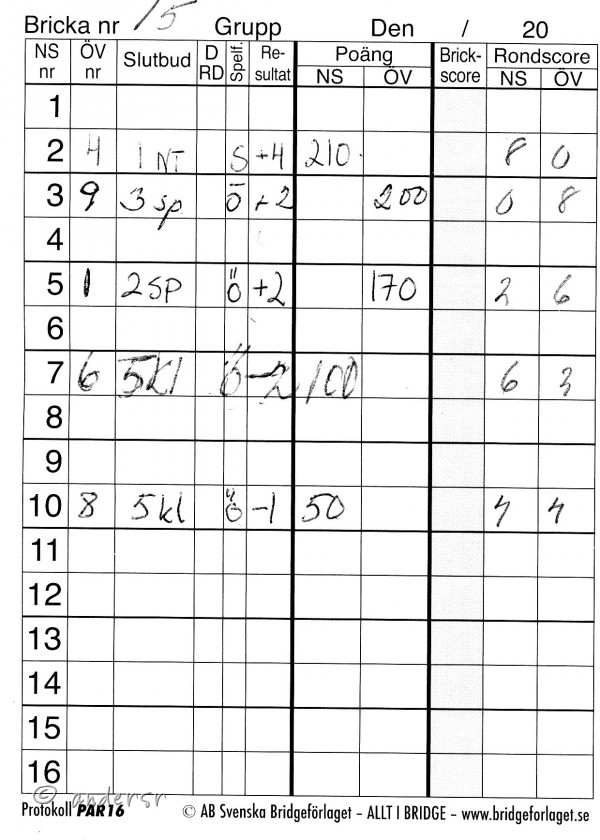 Bricka nr 15 Grupp Den / 20
NS nr ÖV nr Slutbud D RD Spelf. Re-sultat Poäng NS ÖV Brick-score Rondscore NS ÖV
1
2 4 1 NT S +4 210 8 0
3 9 3 sp Ö +2 200 0 8
4
5 1 2 SP Ö +2 170 2 6
6
7 6 5 Kl Ö -2 100 6 3
8
9
10 8 5 kl Ö -1 50 4 4
11
12
13
14
15
16
© andersr
Protokoll PAR16 © AB Svenska Bridgeförlaget – ALLT I BRIDGE – www.bridgeforlaget.se